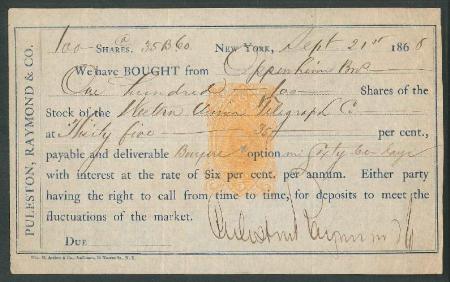 PULESTON, RAYMOND & CO.
100 SHARES. 35 B 60
NEW YORK, Sept 21st 1868
We have BOUGHT from Oppenheim Bros
One hundred 100 Shares of the
Stock of the Western Union Telegraph Co
at Thirty five 35 per cent.,
payable and deliverable Buyers option in Sixty days
with interest at the rate of Six per cent. per annum. Either party
having the right to call from time to time, for deposits to meet the
fluctuations of the market.
Puleston Raymond & Co
DUE